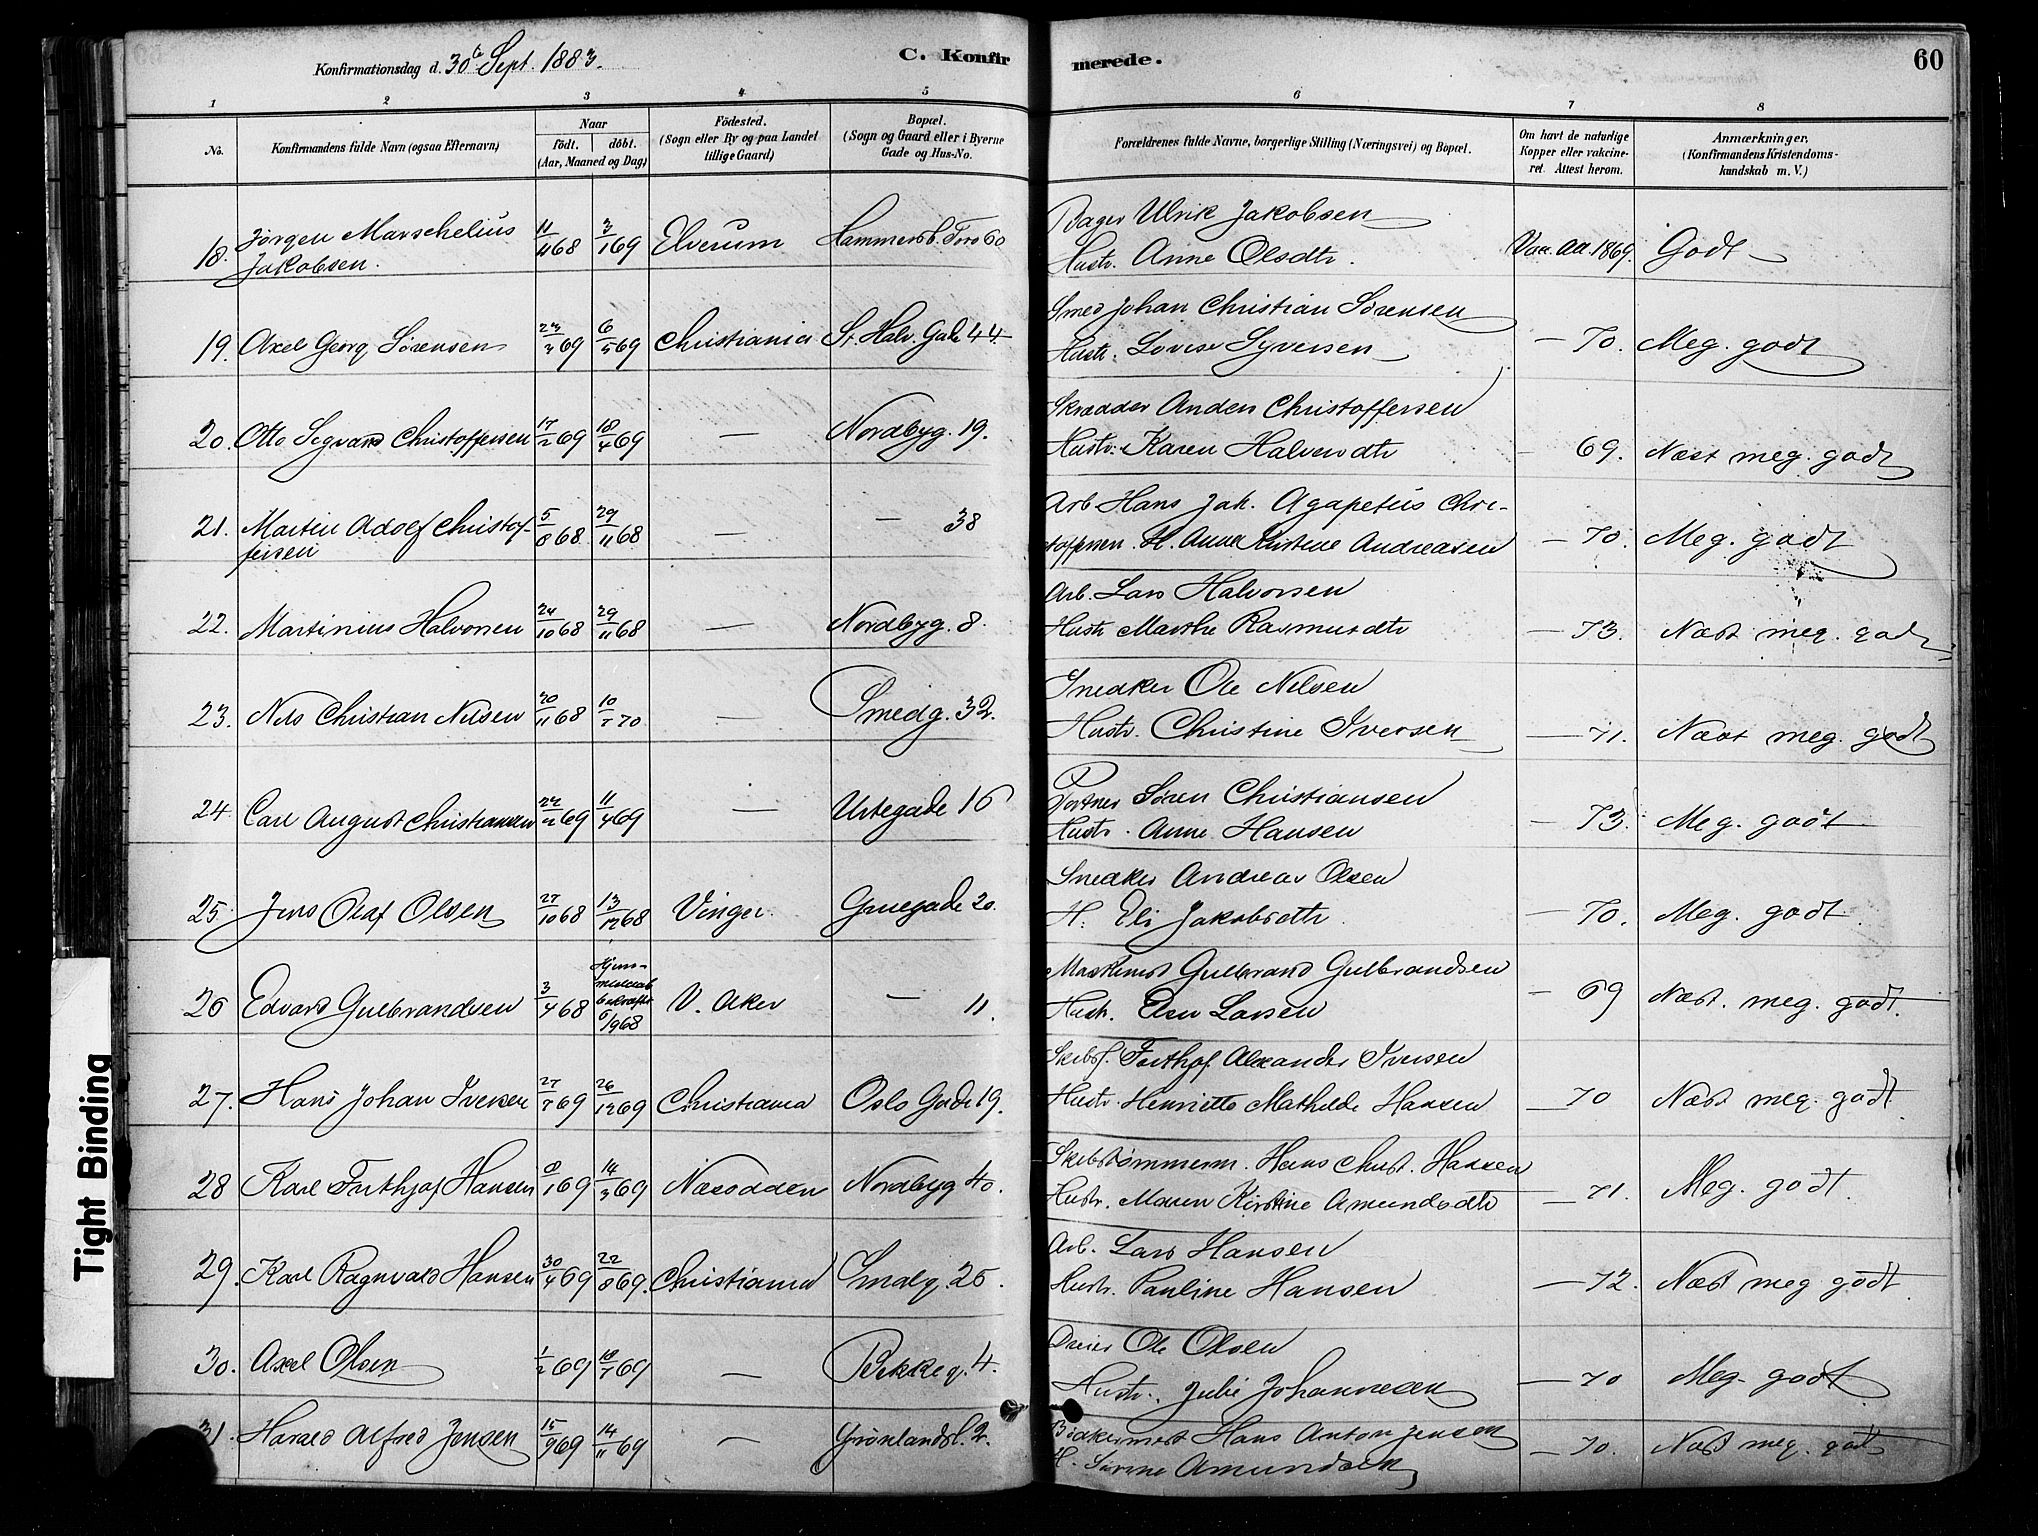 Konfirmationsdag d. 30te Sept. 1883.
C. Konfirmerede.
60
1 2 3 4 5 6 7 8
No.
Konfirmandens fulde Navn (ogsaa Efternavn)
Naar
födt. döbt.
(Aar, Maaned og Dag)
Födested.
(Sogn eller By og paa Landet
tillige Gaard)
Bopæl.
(Sogn og Gaard eller i Byerne
Gade og Hus-No.
Forældrenes fulde Navne, borgerlige Stilling (Næringsvei) og Bopæl.
Om havt de naturlige
Kopper eller vakcine-
ret. Attest herom.
Anmærkninger.
(Konfirmandens Kristendoms-
kundskab m. V.)
18. Jørgen Marschelius Jakobsen. 11/11 68 3/1 69 Elverum Hammersb. Torv 60 Bager Ulrik Jakobsen
Hustr. Anne Olsdtr. Vac. att. 1869 Godt
19. Axel Georg Sørensen 23/3 69 6/5 69 Christiania St. Halv. Gade 44 Smed Johan Christian Sørensen
Hustr. Lovise Syversen — 70. Meg. godt
20. Otto Sigvard Christoffersen 17/2 69 18/4 69 — Nordbyg. 19. Skrædder Anders Christoffersen
Hustr. Karen Halvorsdtr — 69. Næst meg. godt
21. Martin Adolf Christoffersen 5/8 68 29/11 68 — — 38 Arb. Hans Jak. Agapetus Chri-
stoffersen. H. Anne Kirstine Andreasen — 70. Meg. godt
22. Martinius Halvorsen 24/10 68 29/11 68 — Nordbyg. 8. Arb. Lars Halvorsen
Hustr Marthe Rasmusdtr — 73. Næst meg. godt
23. Nils Christian Nilsen 20/11 68 10/7 70 — Smedg. 32. Snedker Ole Nilsen
Hustr. Christine Iversen — 71. Næst meg. godt
24. Carl August Christiansen 22/2 69 11/4 69 — Urtegade 16 Portner Søren Christiansen
Hustr. Anne Hansen — 73. Meg. godt
25. Jens Olaf Olsen 27/10 68 13/12 68 Vinger. Gruegade 20. Snedker Andreas Olsen
H. Eli Jakobsdtr. — 70. Meg. godt.
26 Edvard Gulbrandsen 3/4 68 Hjemmedøbt bekræftet 6/9 68 V. Aker — 11. Maskinist Gulbrand Gulbrandsen
Hustr. Elen Larsen — 69 Næst. meg. godt.
27. Hans Johan Iversen 27/7 69 26/12 69 Christiania Oslo Gade 19. Skibsf. Frithjof Alexander Iversen
Hustr. Henriette Mathilde Hansen — 70 Næst meg. godt.
28 Karl Frithjof Hansen 8/1 69 14/3 69 Næsodden Nordbyg 40. Skibstømmerm. Hans Christ. Hansen
Hustr. Maren Kirstine Amundsdtr — 71. Meg. godt.
29. Karl Ragnvald Hansen 30/4 69 22/8 69. Christiania Smedg. 25. Arb. Lars Hansen
Hustr. Pauline Hansen — 72. Næst meg godt.
30. Axel Olsen 1/2 69 18/7 69 — Bekkeg. 4. Dreier Ole Olsen
Hustr. Julie Johannesen — 70 Meg. godt
31. Harald Alfred Jensen 15/9 69 14/11 69 — Grønlandsl. 2. Bødkermest Hans Anton Jensen
H. Sørine Amundsen — 70. Næst meg. godt
Tight Binding